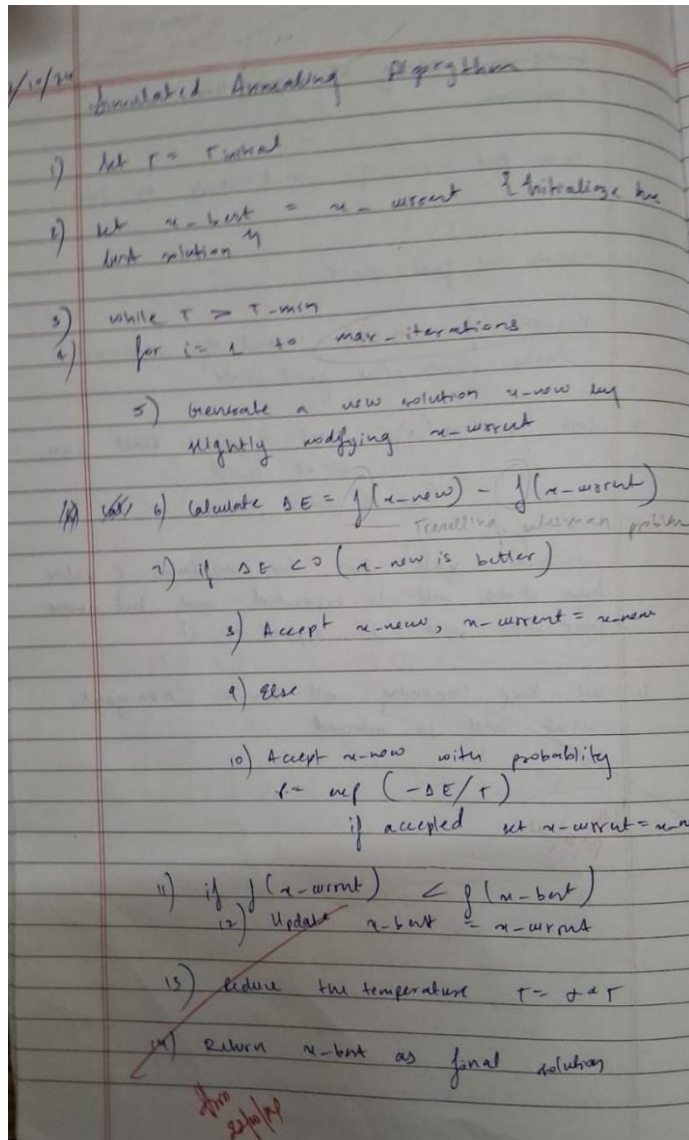 /10/24
Simulated Annealing Algorythm
1) let T = Tinitial
2) let x_best = x_current { Initialize the
best solution }
3) while T > T_min
4) for i = 1 to max_iterations
5) Generate a new solution x_new by
slightly modifying x_current
6) Calculate ΔE = f(x_new) - f(x_current)
Travelling salesman problem
7) if ΔE < 0 (x_new is better)
8) Accept x_new, x_current = x_new
9) Else
10) Accept x_new with probablity
P = exp (-ΔE/T)
if accepted set x_current = x_n
11) if f(x_current) < f(x_best)
12) Update x_best = x_current
13) Reduce the temperature T = α * T
14) Return x_best as final solution